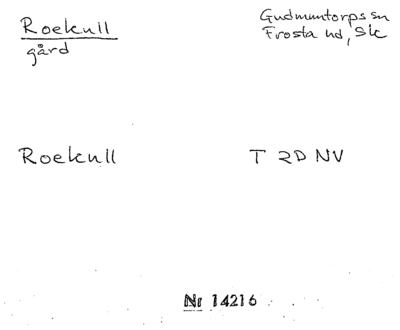 Roekull
gård
Gudmuntorps sn
Frosta hd, Sk
Roekull
T 2D NV
Nr 14216